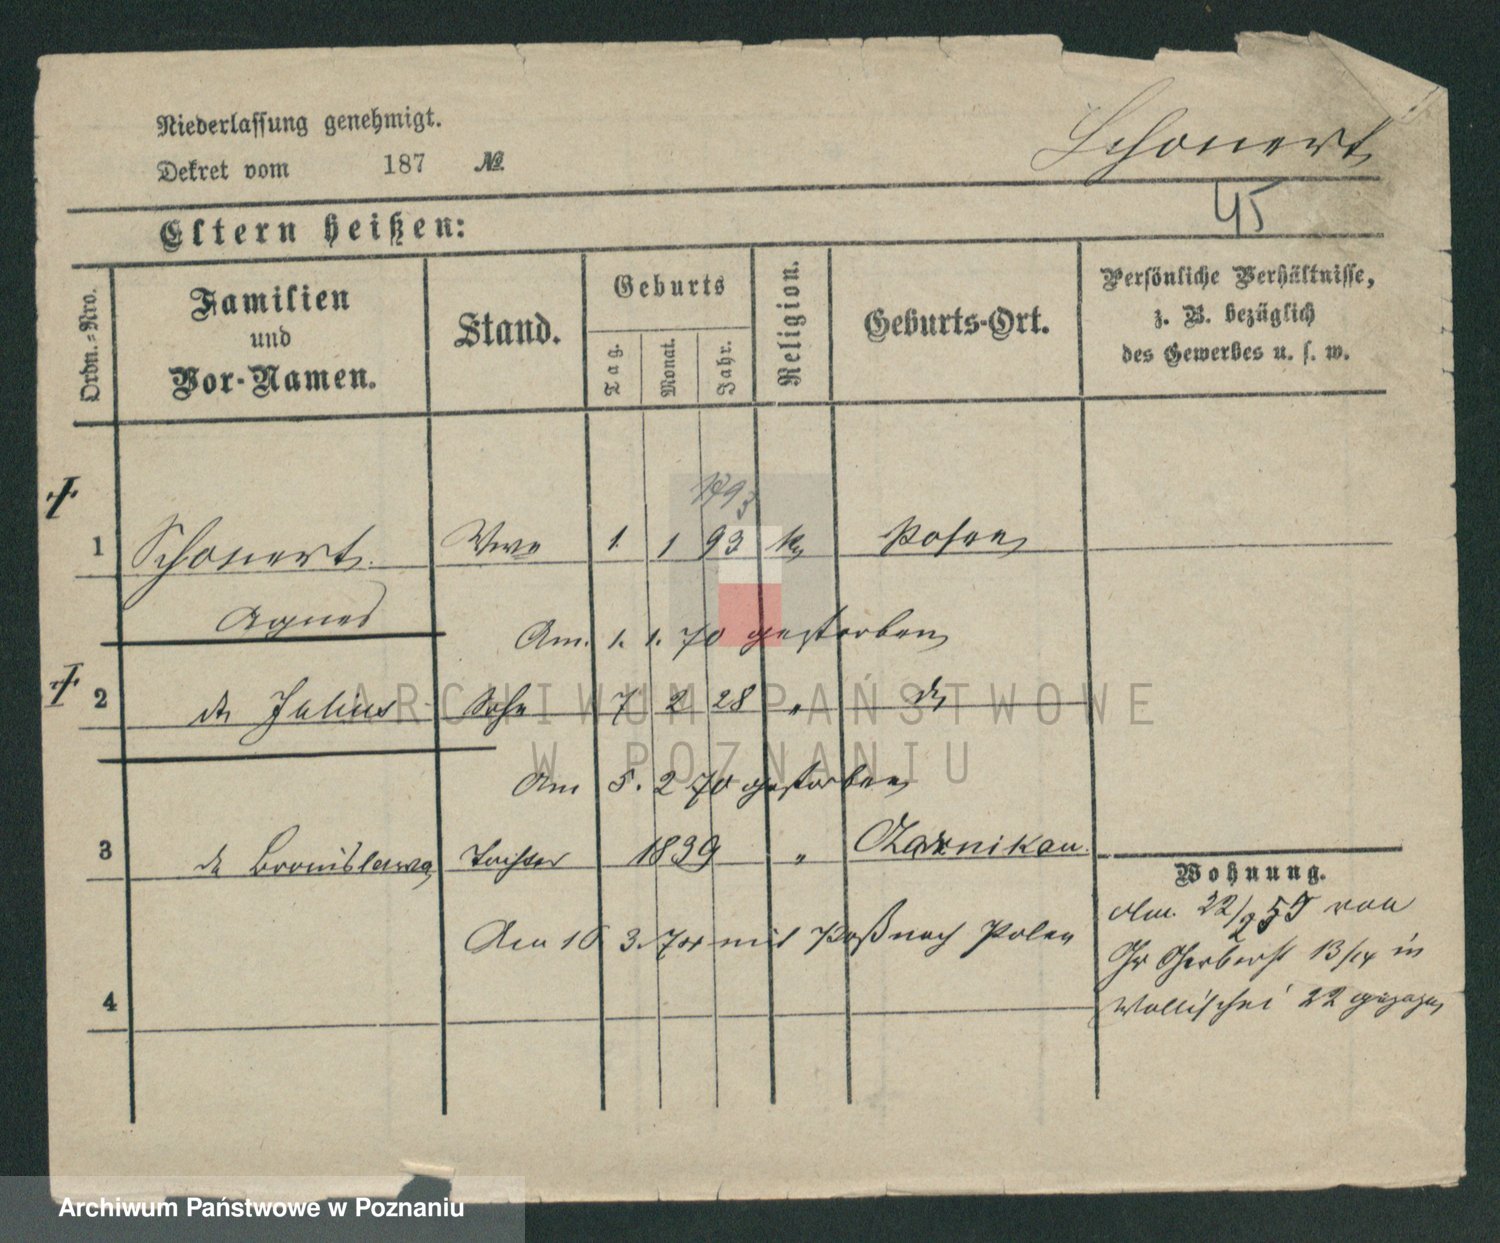 Niederlassung genehmigt.
Schonert
Dekret vom 187 №
45
Eltern heißen:
Ordn.-Nro.
Familien
und
Vor-Namen.
Stand.
Geburts
Tag.
Monat.
Jahr.
Religion.
Geburts-Ort.
Persönliche Verhältnisse,
z. B. bezüglich
des Gewerbes u. s. w.
1793
1 Schonert. Wwe 1. 1 93 k. Posen
Agnes
Am. 1. 1. 70 gestorben
2 do Julius Sohn 7 2 28 " do
Am 5. 2 70 gestorben
3 do Bronislawa Tochter 1839 " Czarnikau.
Wohnung.
Am 16 3. 70 mit Paß nach Polen
Am. 22/2 55 von
Gr Gerberst 13/14 in
4
Wallischei 22 gezogen
ARCHIWUM PAŃSTWOWE
W POZNANIU
Archiwum Państwowe w Poznaniu